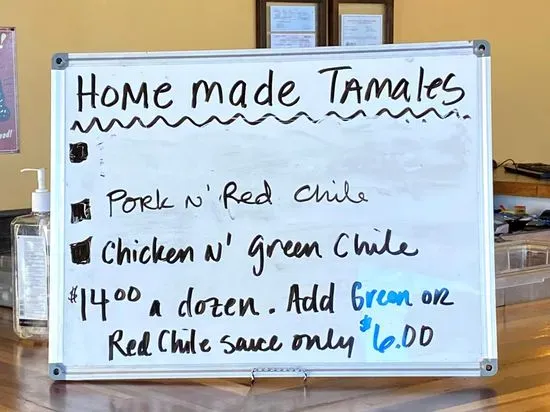 Home made Tamales
Pork n' Red Chile
Chicken n' green Chile
$14.00 a dozen. Add Green or
Red Chile sauce only $6.00